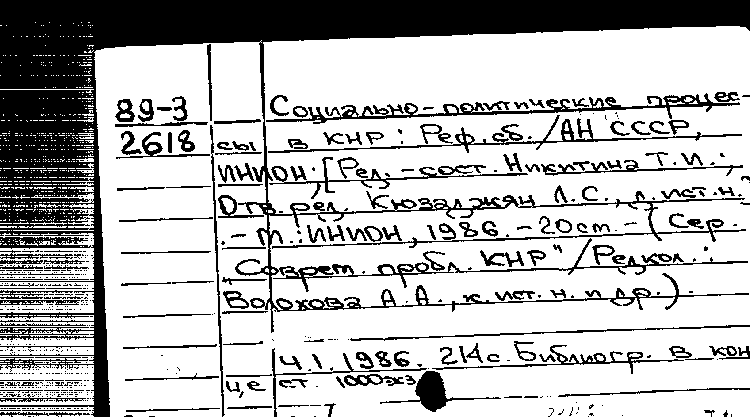 89-3 Социально-политические процес-
2618 сы в КНР: Реф. сб. /АН СССР,
ИНИОН; [Ред.-сост. Никитина Т.И.;
Отв. ред. Кюзаджян Л.С., д. ист. н.]
.- М.: ИНИОН, 1986. - 20 см. - (Сер.
„Соврем. пробл. КНР" /Редкол.:
Волохова А.А., к. ист. н. и др.).
Ч.1. 1986. 214с. Библиогр. в кон
це ст. 1000экз